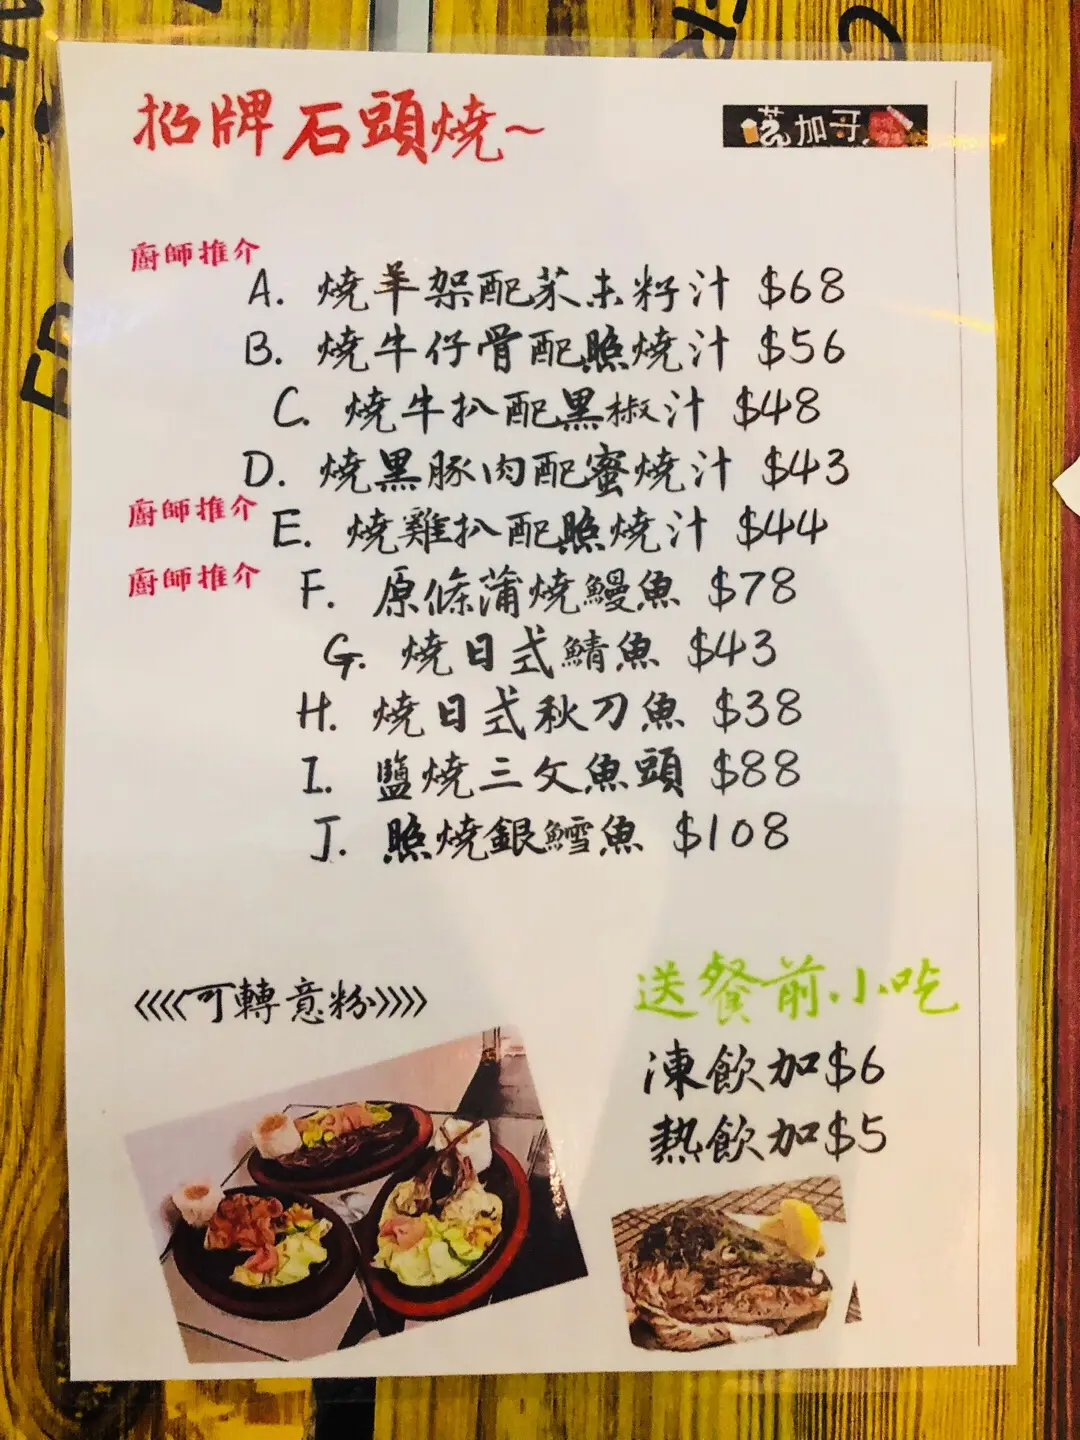 招牌石頭燒~
加哥
廚師推介
A. 燒羊架配茱未籽汁 $68
B. 燒牛仔骨配照燒汁 $56
C. 燒牛扒配黑椒汁 $48
D. 燒黑豚肉配蜜燒汁 $43
廚師推介
E. 燒雞扒配照燒汁 $44
廚師推介
F. 原條蒲燒鰻魚 $78
G. 燒日式鯖魚 $43
H. 燒日式秋刀魚 $38
I. 鹽燒三文魚頭 $88
J. 照燒銀鱈魚 $108
<<<<可轉意粉>>>>
送餐前小吃
凍飲加$6
熱飲加$5